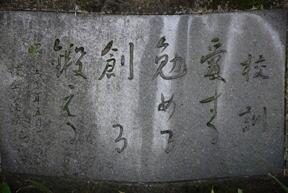 校訓
愛する
勉める
創る
鍛える